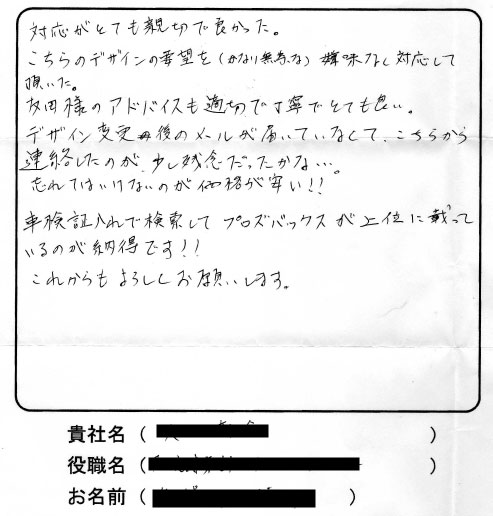 対応がとても親切で良かった。
こちらのデザインの要望を(かなり無茶な)嫌味なく対応して
頂いた。
友田様のアドバイスも適切で丁寧でとても良い。
デザイン変更後のメールが届いていなくて、こちらから
連絡したのが、少し残念だったかな…。
忘れてはいけないのが価格が安い!!
車検証入れで検索してプロズバックスが上位に載って
いるのが納得です!!
これからもよろしくお願いします。
貴社名( )
役職名( )
お名前( )